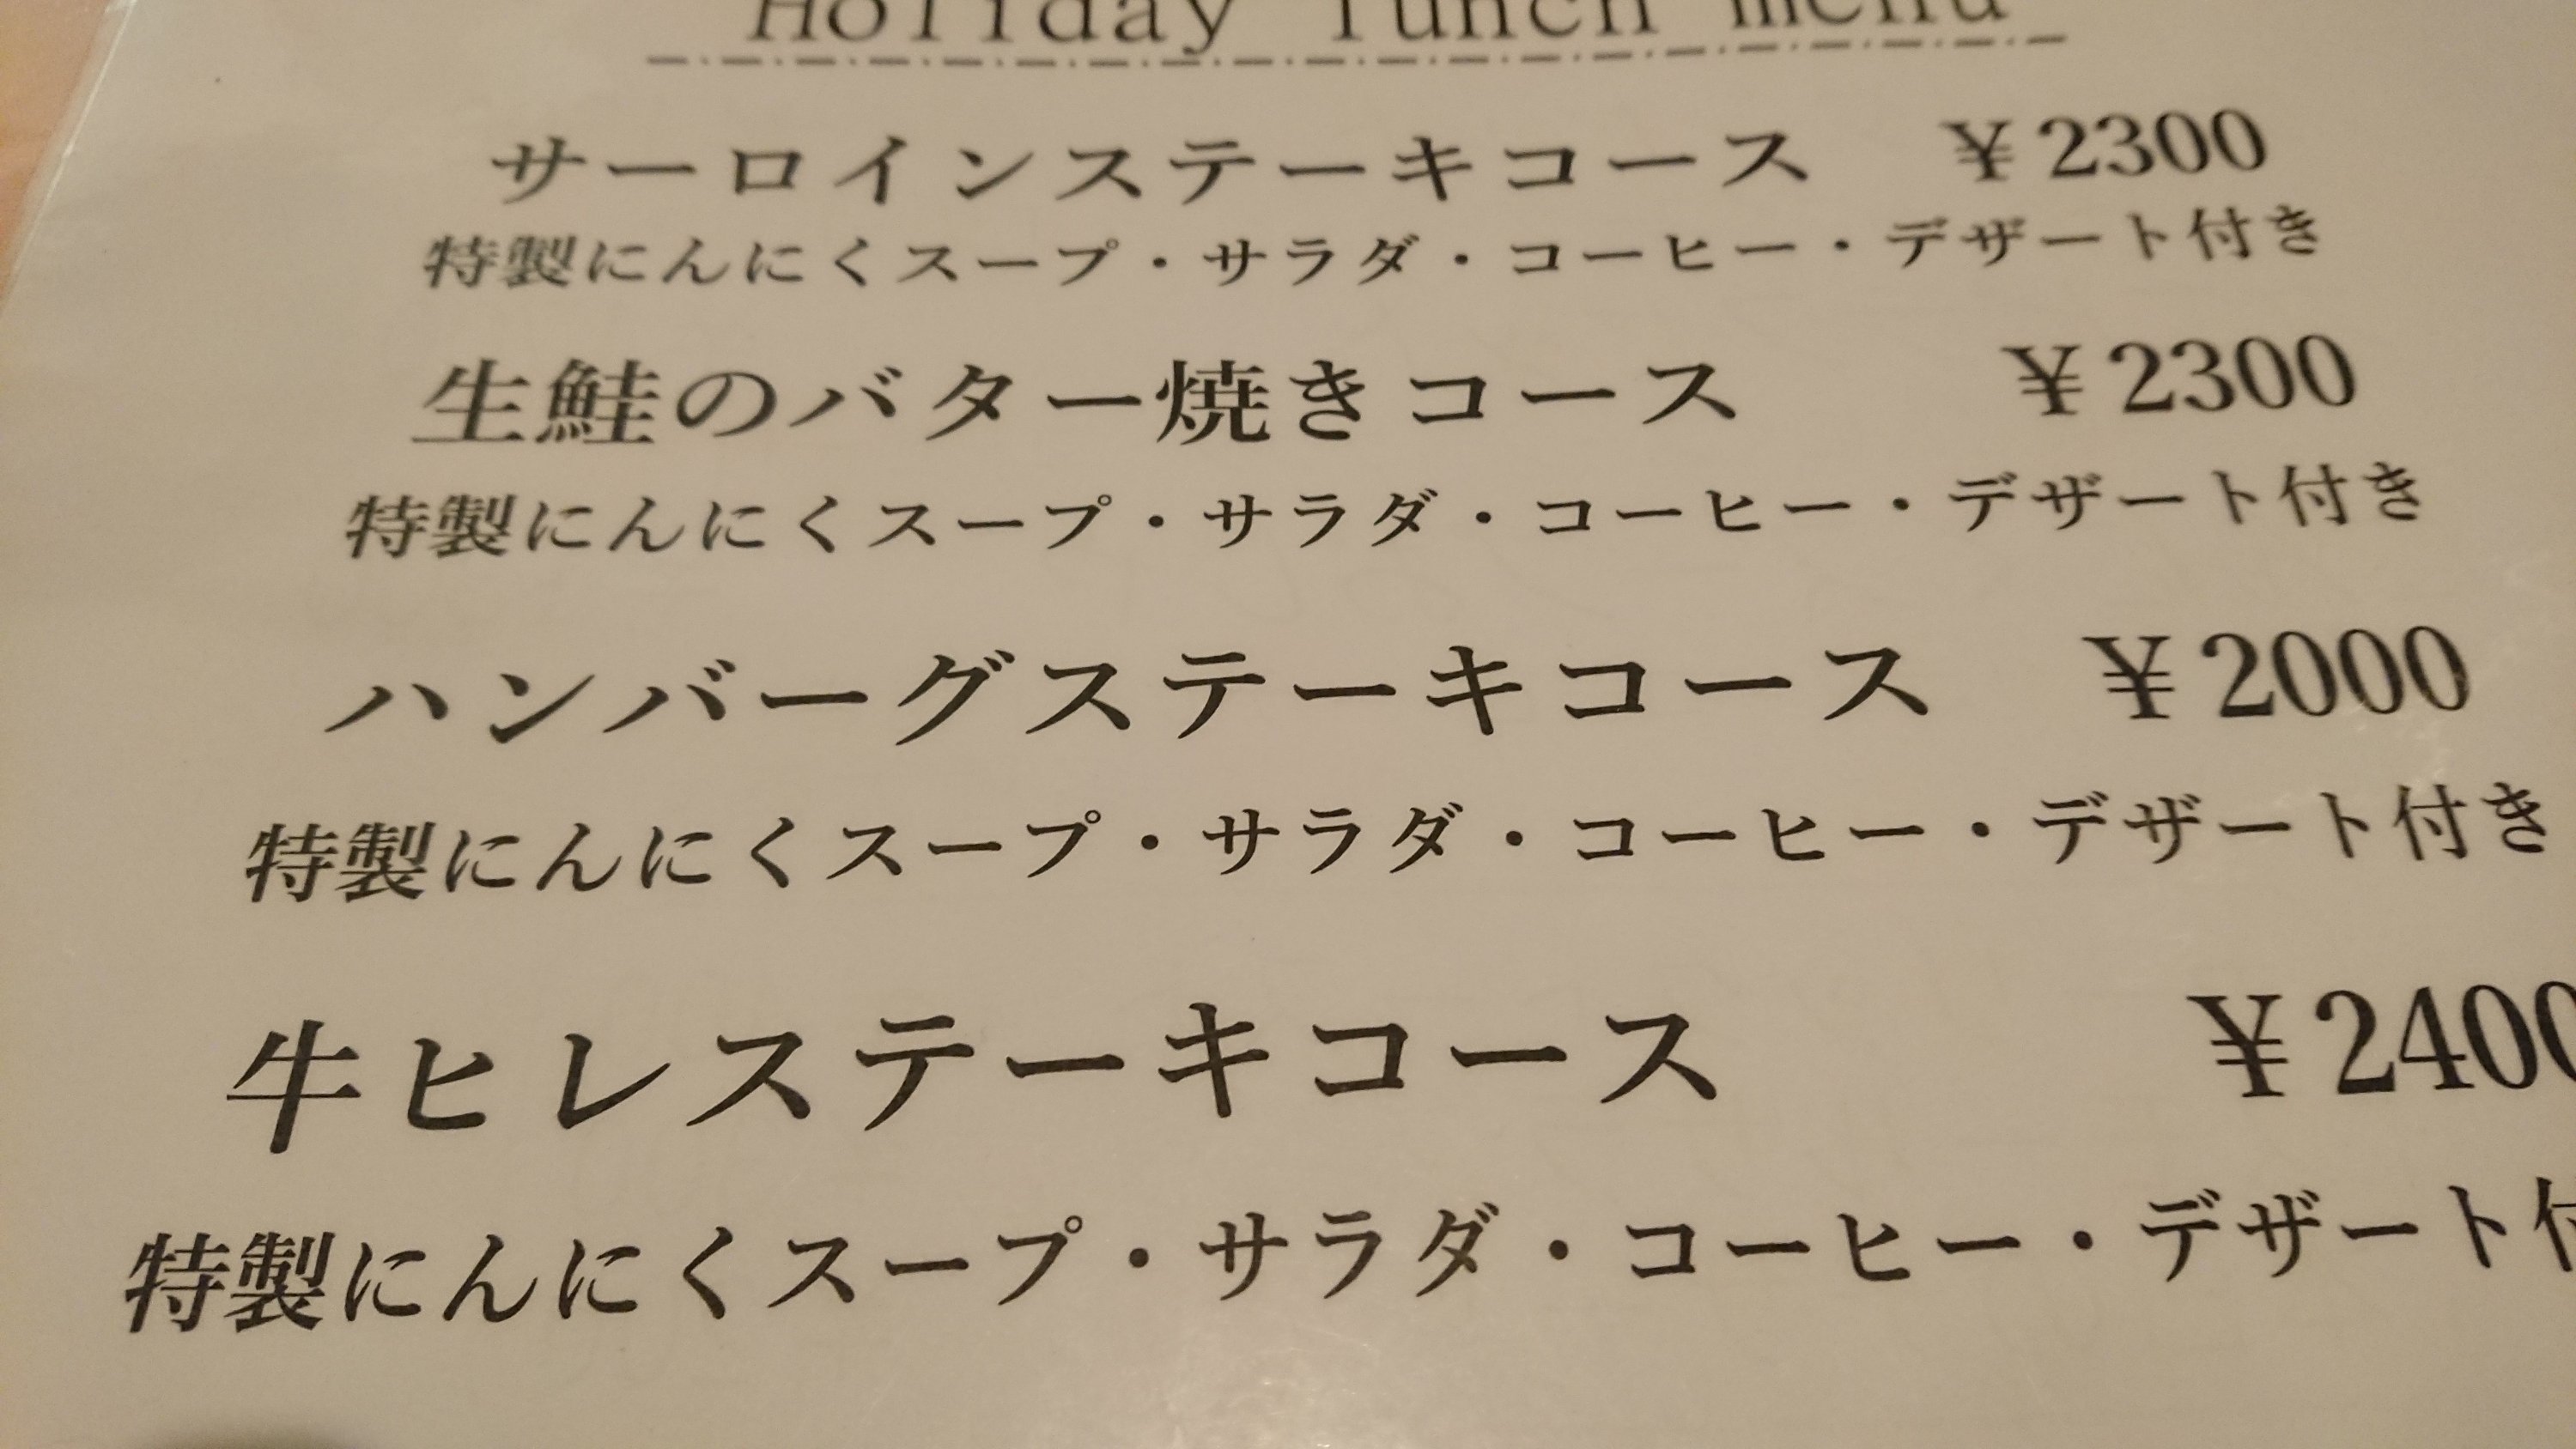 Holiday lunch menu
サーロインステーキコース ￥2300
特製にんにくスープ・サラダ・コーヒー・デザート付き
生鮭のバター焼きコース ￥2300
特製にんにくスープ・サラダ・コーヒー・デザート付き
ハンバーグステーキコース ￥2000
特製にんにくスープ・サラダ・コーヒー・デザート付き
牛ヒレステーキコース ￥2400
特製にんにくスープ・サラダ・コーヒー・デザート付